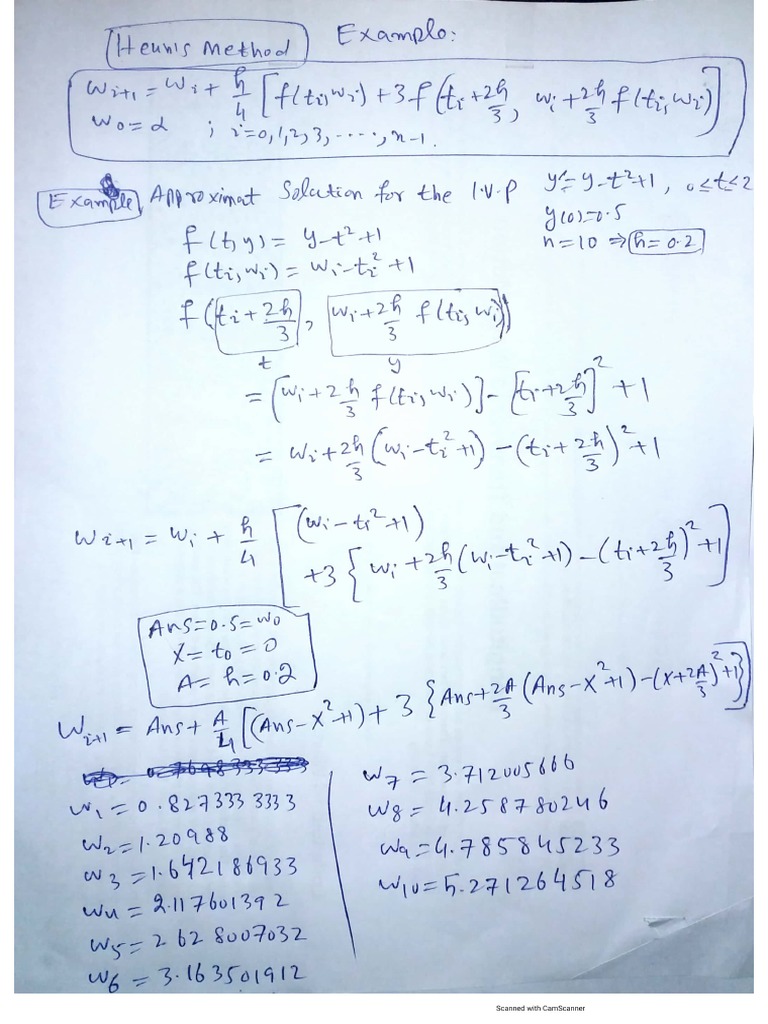 Heun's Method Example:
w_{i+1} = w_i + h/4 [f(t_i, w_i) + 3f(t_i + 2h/3, w_i + 2h/3 f(t_i, w_i)]
w_0 = α ; i = 0, 1, 2, 3, ....., n-1.
Example, Approximat Solution for the I.V.P y' = y - t² + 1, 0 ≤ t ≤ 2
y(0) = 0.5
n = 10 ⇒ h = 0.2
f(t, y) = y - t² + 1
f(t_i, w_i) = w_i - t_i² + 1
f(t_i + 2h/3, w_i + 2h/3 f(t_i, w_i))
t y
= [w_i + 2h/3 f(t_i, w_i)] - [t_i + 2h/3]² + 1
= w_i + 2h/3 (w_i - t_i² + 1) - (t_i + 2h/3)² + 1
w_{i+1} = w_i + h/4 [(w_i - t_i² + 1)
+ 3 { w_i + 2h/3 (w_i - t_i² + 1) - (t_i + 2h/3)² + 1]
Ans = 0.5 = w_0
X = t_0 = 0
A = h = 0.2
W_{i+1} = Ans + A/4 [(Ans - X² + 1) + 3 {Ans + 2A/3 (Ans - X² + 1) - (X + 2A/3)² + 1}]
w_1 = 0.8273333333
w_2 = 1.20988
w_3 = 1.642186933
w_4 = 2.117601392
w_5 = 2.628007032
w_6 = 3.163501912
w_7 = 3.712005666
w_8 = 4.258780246
w_9 = 4.785845233
w_10 = 5.271264518
Scanned with CamScanner